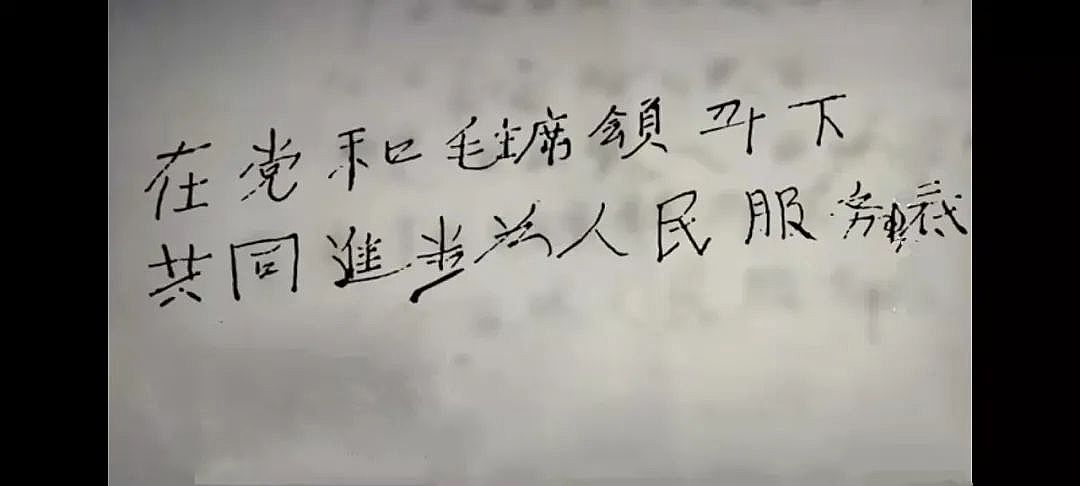 在党和毛主席領导下
共同進步为人民服务